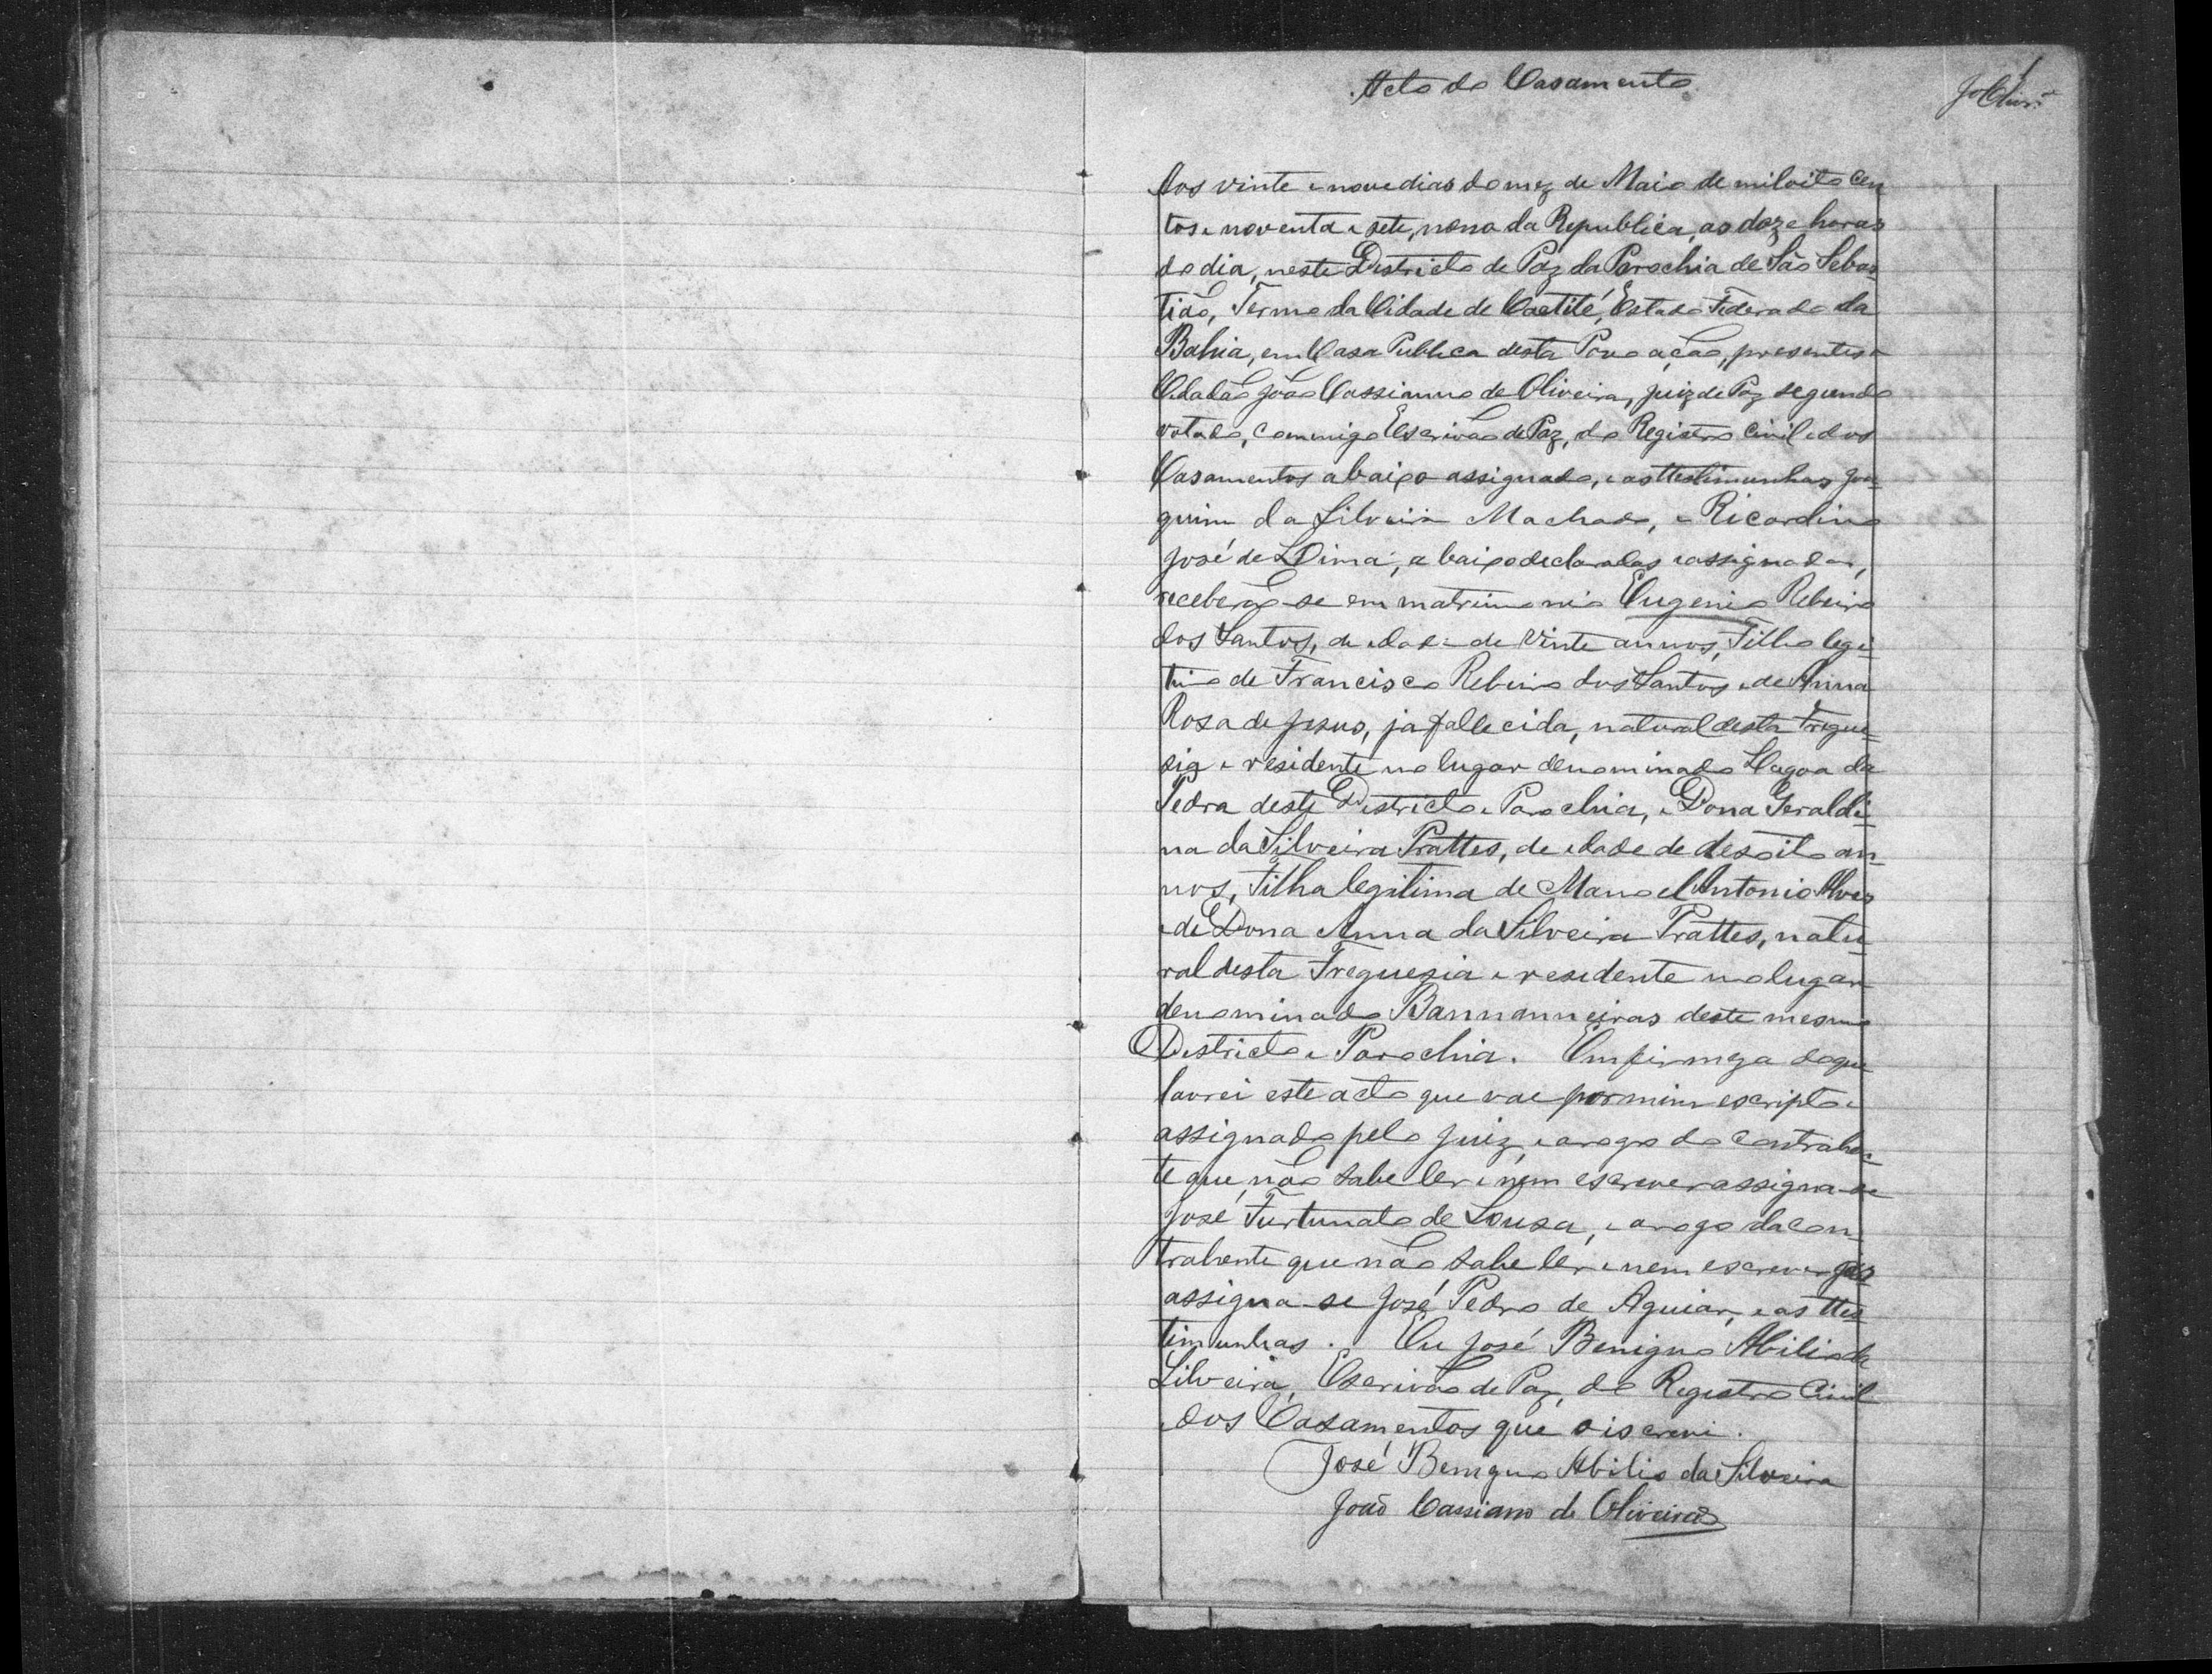 Acto do Casamento
1
Aos vinte e nove dias do mez de Maio de mil oito cen
tos e noventa e sete, nono da Republica, as doze horas
do dia, neste Districto de Paz da Parochia de São Sebas
tião, Termo da Cidade de Caetité, Estado Federado da
Bahia, em Casa Publica desta Povoação, presentes o
Cidadão João Cassianno de Oliveira, Juiz de Paz segundo
votado, commigo Escrivão de Paz, do Registro Civil e dos
Casamentos abaixo assignado, e as ttestimunhas Joa
quim da Silveira Machado, e Ricardino
José de Lima, abaixo declaradas e assignadas,
receberão-se em matrimonio Eugenio Ribeiro
dos Santos, de idade de vinte annos, Filho legi
timo de Francisco Ribeiro dos Santos e de Anna
Rosa de Jesus, ja fallecida, natural desta Fregue
sia e residente no lugar denominado Lagoa da
Pedra deste Districto e Parochia, e Dona Geraldi
na da Silveira Prattes, de idade de desoito an
nos, Filha legitima de Manoel Antonio Alves
e de Dona Anna da Silveira Prattes, natu
ral desta Freguesia e residente no lugar
denominado Bannanneiras deste mesmo
Districto e Parochia. Em firmeza do que
lavrei este acto que vae por mim escripto e
assignado pelo Juiz, e arogo do contrahen
te que não sabe ler e nem escrever assigna-se
José Furtunato de Sousa, e arogo da con
trahente que não sabe ler e nem escrever
assigna-se José Pedro de Aguiar, e as ttes
timunhas. Eu José Benigno Abilio da
Silveira, Escrivão de Paz, do Registro Civil
e dos Casamentos que o iscrevi.
José Benigno Abilio da Silveira
João Cassiano de Oliveira